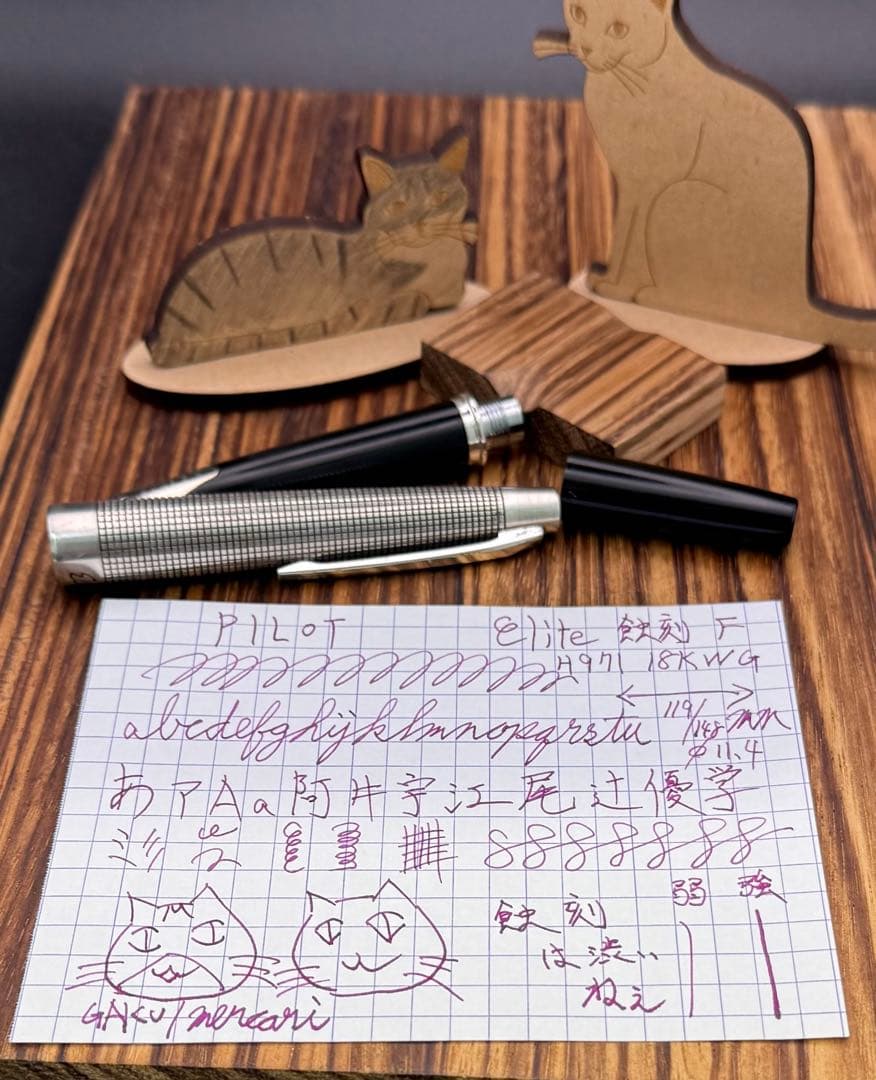 PILOT Elite 蝕刻 F
H971 18K WG
abcdefghijklmnopqrstu 119/148mm
φ11.4
あアAa阿井宇江尾辻優学
ミリ
8888888
弱 強
蝕刻
は渋い
ねえ
GAKU/mercari